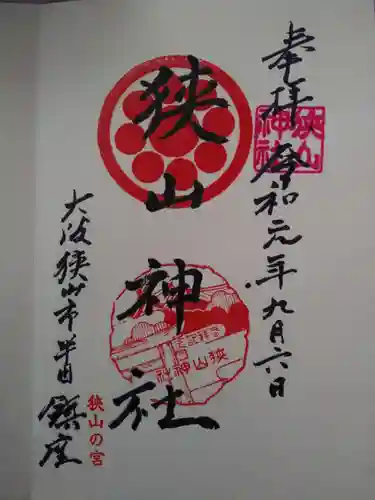 奉拝 令和元年九月六日
狭山
神社
狭山神社
狭山神社
大阪狭山市半田 鎮座
狭山の宮